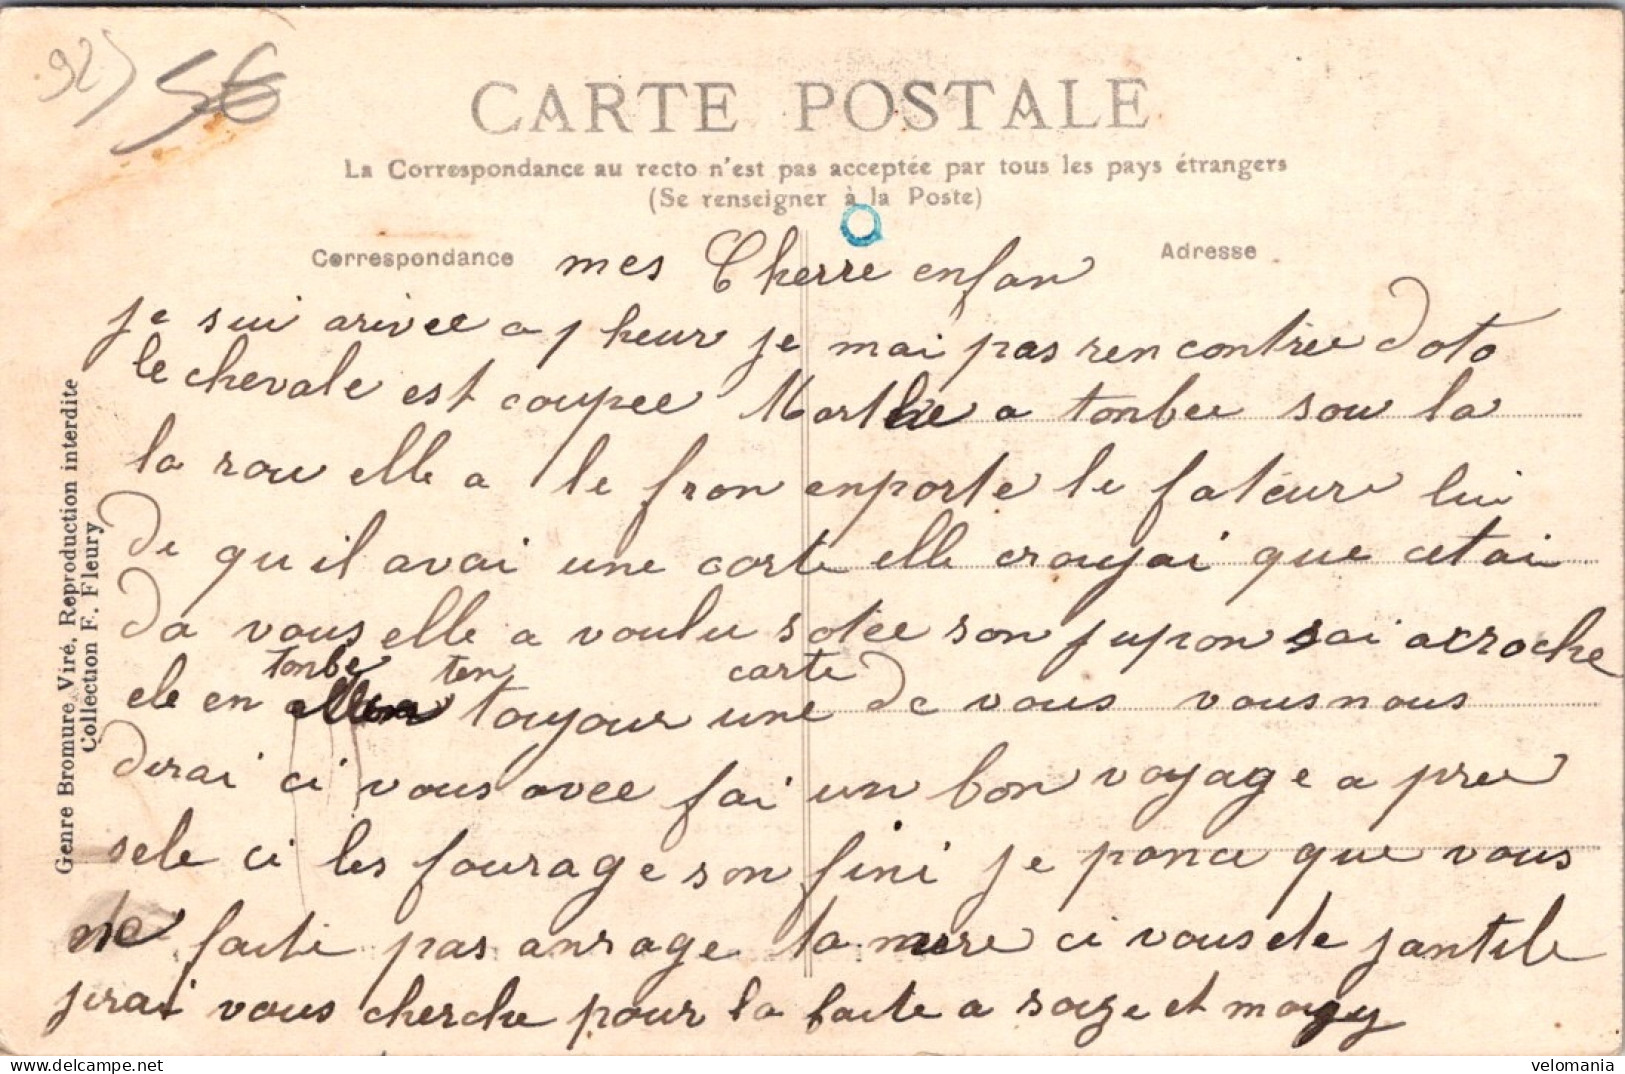 92) 56
CARTE POSTALE
La Correspondance au recto n'est pas acceptée par tous les pays étrangers
(Se renseigner à la Poste)
Correspondance
Adresse
mes Cherre enfan
je sui arivee a 7 heur je mai pas rencontree doto
le chevale est coupee Marthe a tonbee sou la
la rou elle a le fron enporte le fateur lui
di qu il avai une carte elle croyai que cetai
da vous elle a voulu sotee son jupon sai acroche
ele en tonbe
ten toujour une carte de vous vous nous
dirai ci vous avee fai un bon voyage a pre
sele ci les fourage son fini je pance que vous
ne faite pas anrage ta mere ci vous ete jantile
jirai vous cherche pour la faite a
Genre Bromure Viré. Reproduction interdite
Collection F. Fleury
velomania